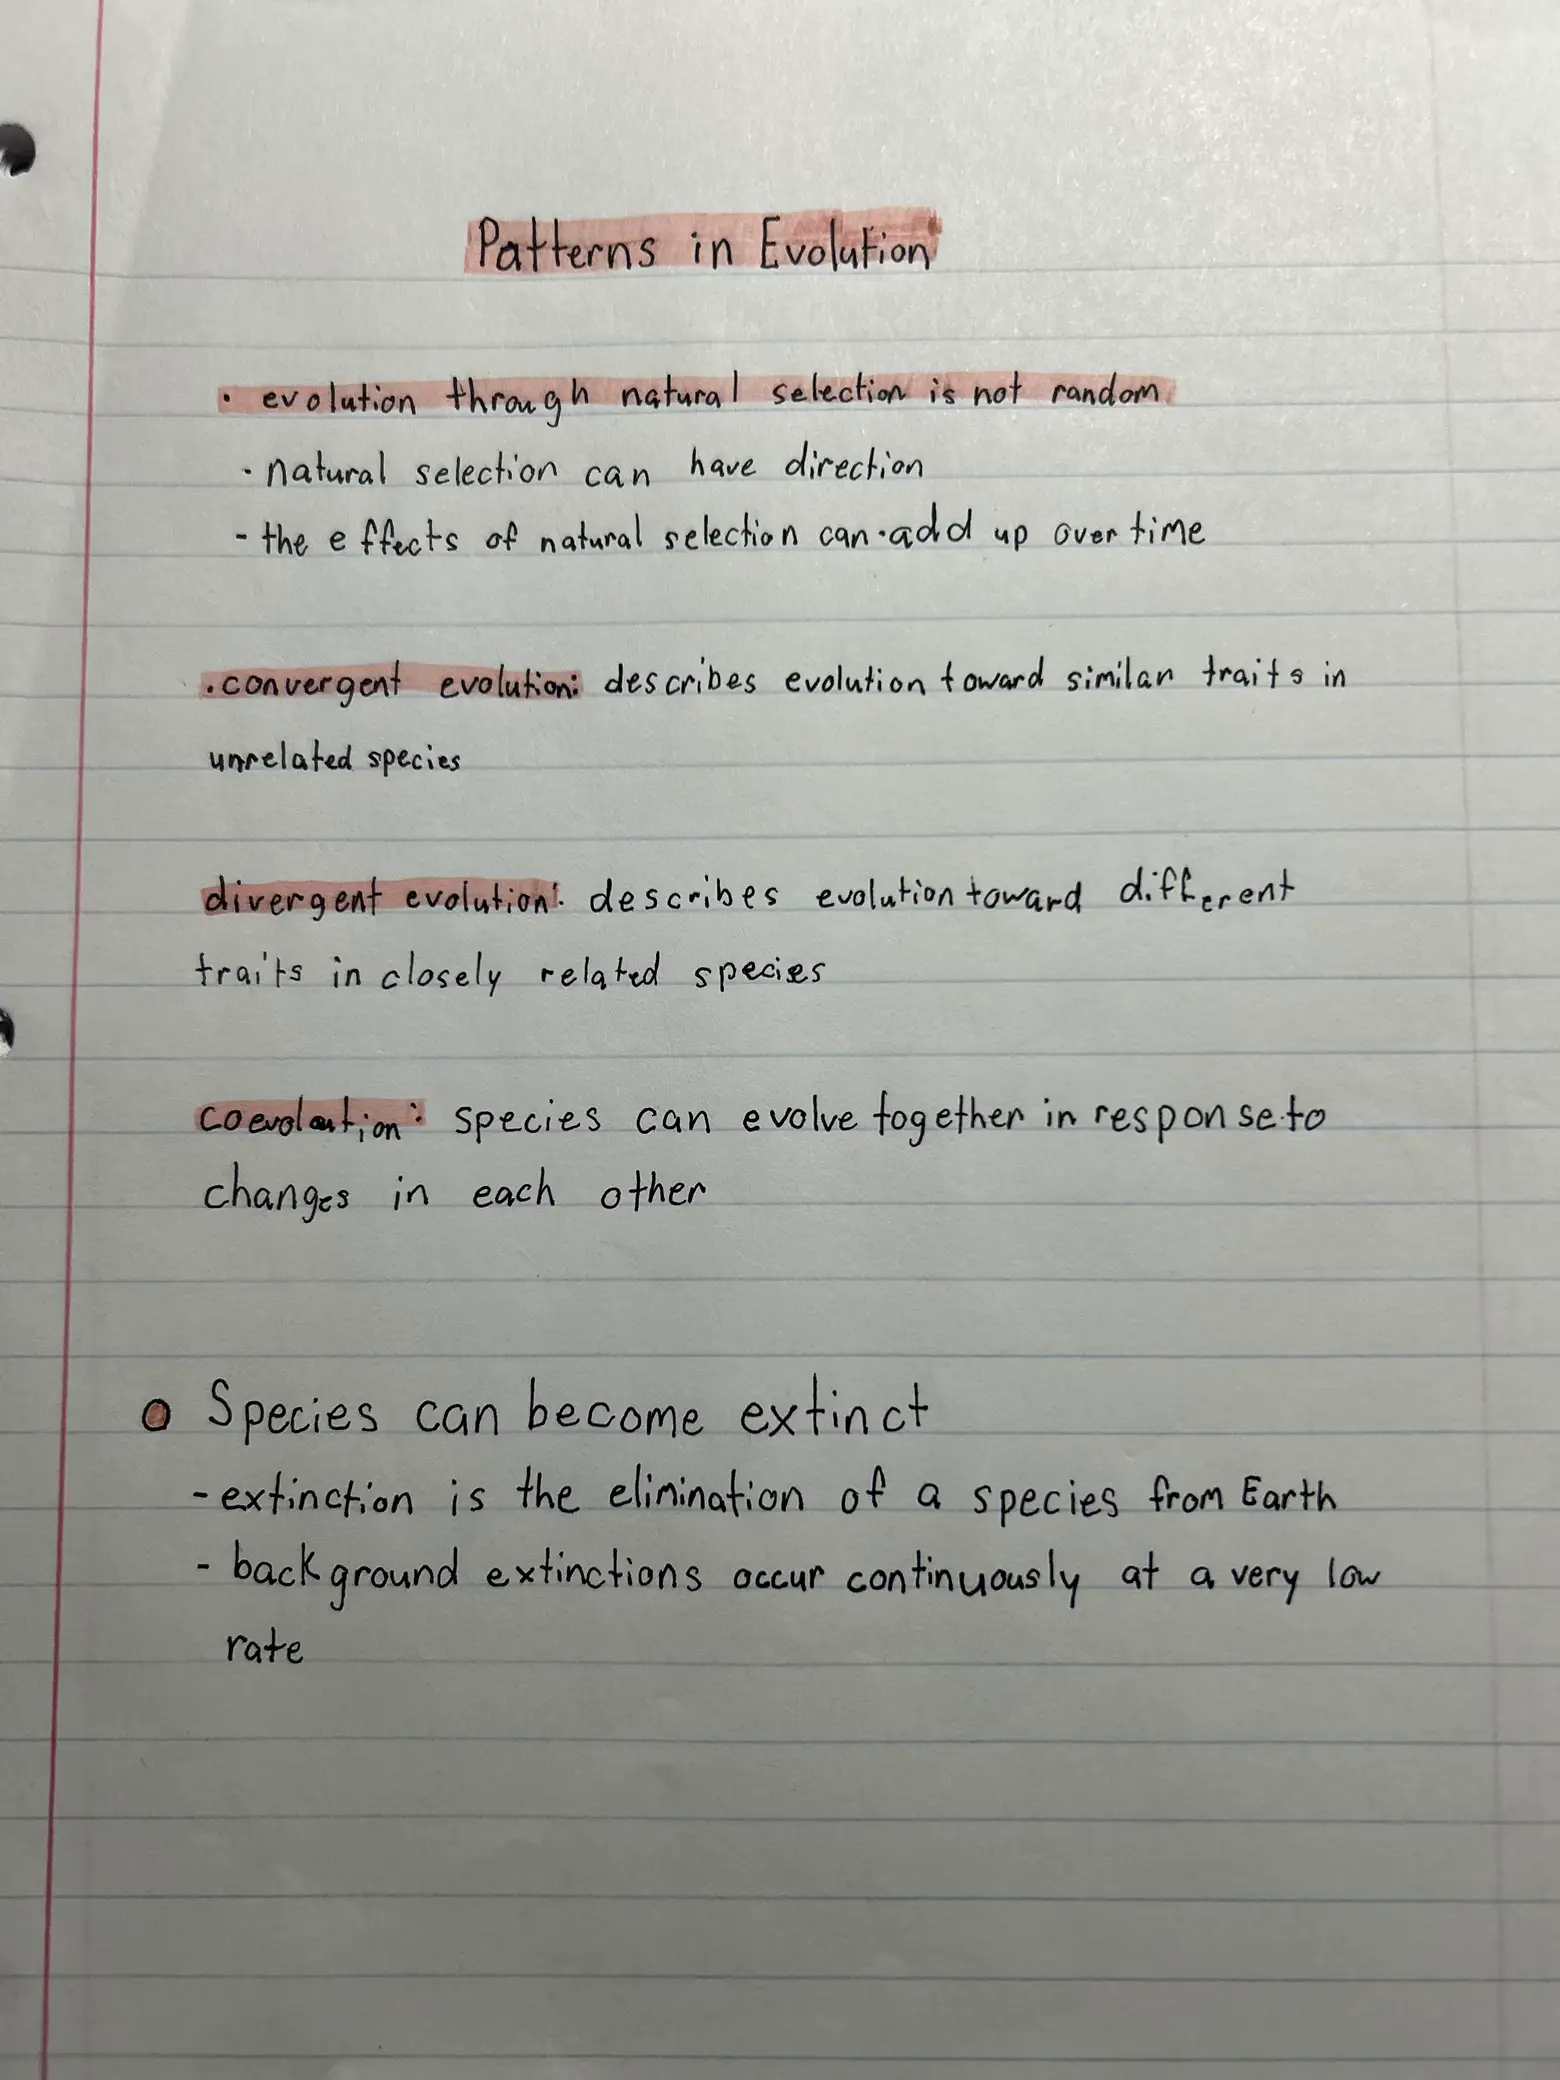 Patterns in Evolution
· evolution through natural selection is not random
· natural selection can have direction
- the effects of natural selection can add up over time
· convergent evolution: describes evolution toward similar traits in
unrelated species
divergent evolution: describes evolution toward different
traits in closely related species
coevolution: species can evolve together in response to
changes in each other
• Species can become extinct
- extinction is the elimination of a species from Earth
- background extinctions occur continuously at a very low
rate